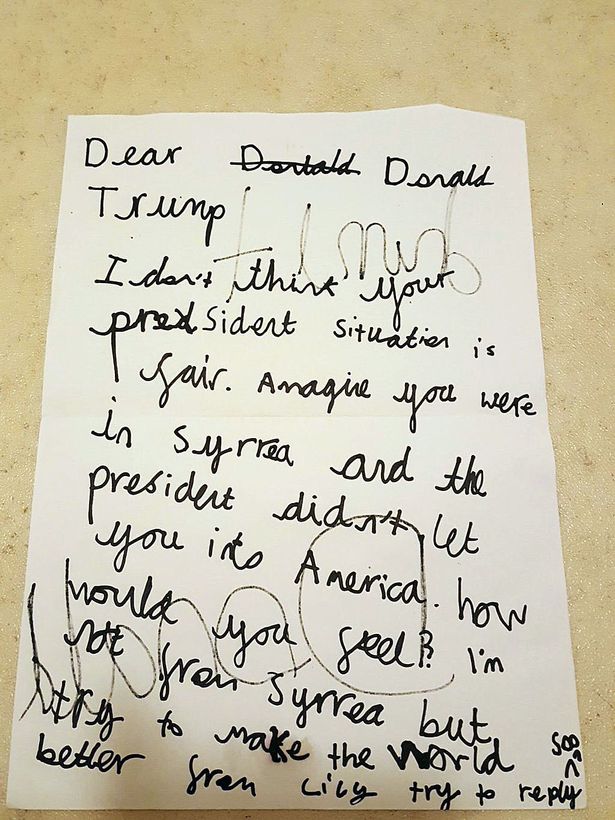 Dear Donald Donald
Trump
I don't think your
predsident situation is
fair. Amagine you were
in syrrea and the
president didn't let
you into America. how
would you feel? I'm
not from syrrea but
try to make the world
better from Lily try to reply soo